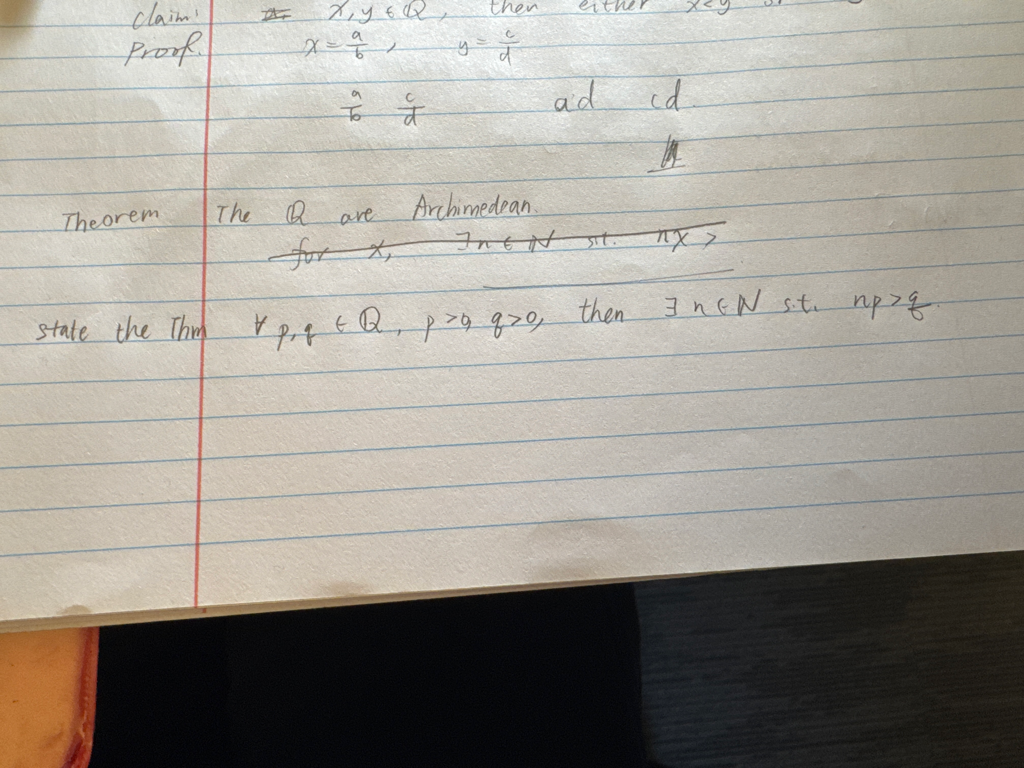 Claim: x, y ∈ Q, then either x<y
Proof. x = a/b, y = c/d
a/b c/d ad cd
Theorem The Q are Archimedean.
for x, ∃n ∈ N s.t. nx >
state the Thm ∀ p,q ∈ Q, p>0, q>0, then ∃ n ∈ N s.t. np>q.